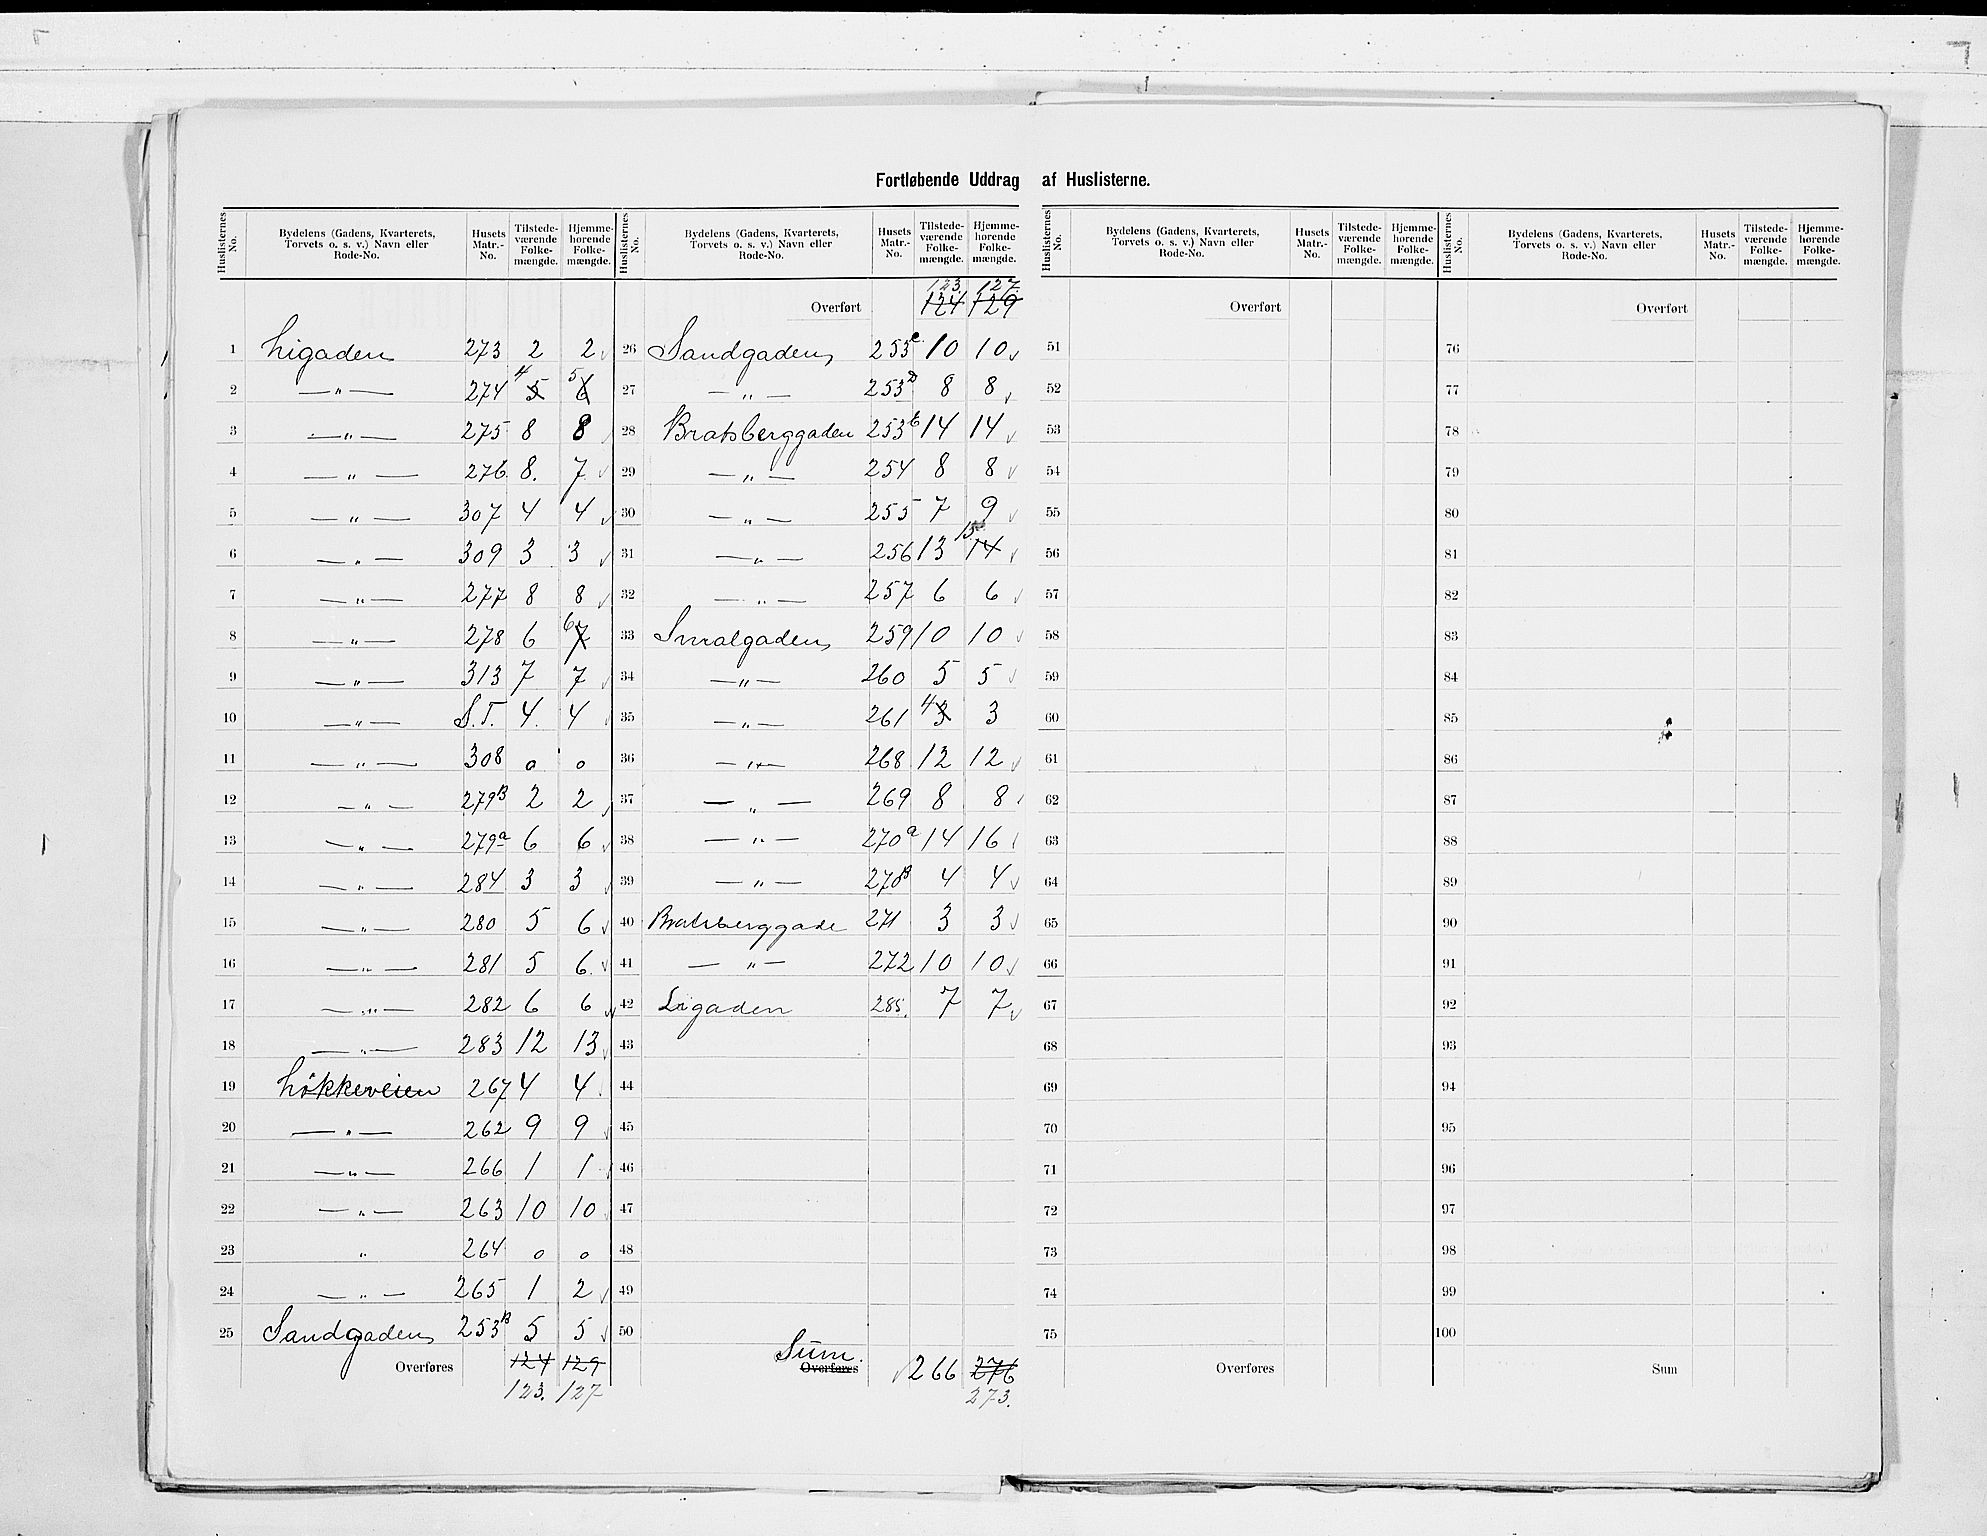 Fortløbende Uddrag af Huslisterne.
Huslisternes No. Bydelens (Gadens, Kvarterets, Torvets o. s. v.) Navn eller Rode-No. Husets Matr.-No. Tilstedeværende Folkemængde. Hjemmehørende Folkemængde.
1 Ligaden 273 2 2
2 —„— 274 4 5 5 6
3 —„— 275 8 8
4 —„— 276 8. 7
5 —„— 307 4 4
6 —„— 309 3 3
7 —„— 277 8 8
8 —„— 278 6 6 7
9 —„— 313 7 7
10 —„— S.T. 4. 4
11 —„— 308 0 0
12 —„— 279B 2 2
13 —„— 279a 6 6
14 —„— 284 3 3
15 —„— 280 5 6
16 —„— 281 5 6
17 —„— 282 6 6
18 —„— 283 12 13
19 Løkkeveien 267 4 4
20 —„— 262 9 9
21 —„— 266 1 1
22 —„— 263 10 10
23 „ 264 0 0
24 —„— 265 1 2
25 Sandgaden 253B 5 5
Overføres 124 129
123. 127
Huslisternes No. Bydelens (Gadens, Kvarterets, Torvets o. s. v.) Navn eller Rode-No. Husets Matr.-No. Tilstedeværende Folkemængde. Hjemmehørende Folkemængde.
123. 127.
Overført 124 129
26 Sandgaden 253c 10 10
27 —„— 253D 8 8
28 Bratsberggaden 253b 14 14
29 —„— 254 8 8
30 —„— 255 7 9
31 —„— 256 13 15 14
32 —„— 257 6 6
33 Smalgaden 259 10 10
34 —„— 260 5 5
35 —„— 261 4 3 3
36 —„— 268 12 12
37 —„— 269 8 8
38 —„— 270a 14 16
39 —„— 270B 4 4
40 Bratsberggade 271 3 3
41 —„— 272 10 10
42 Ligaden 285. 7 7
43
44
45
46
47
48
49
50
Sum.
Overføres 266 276
273.
Huslisternes No. Bydelens (Gadens, Kvarterets, Torvets o. s. v.) Navn eller Rode-No. Husets Matr.-No. Tilstedeværende Folkemængde. Hjemmehørende Folkemængde.
Overført
51
52
53
54
55
56
57
58
59
60
61
62
63
64
65
66
67
68
69
70
71
72
73
74
75
Overføres
Huslisternes No. Bydelens (Gadens, Kvarterets, Torvets o. s. v.) Navn eller Rode-No. Husets Matr.-No. Tilstedeværende Folkemængde. Hjemmehørende Folkemængde.
Overført
76
77
78
79
80
81
82
83
84
85
86
87
88
89
90
91
92
93
94
95
96
97
98
99
100
Sum